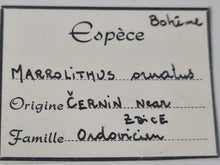 Bohême
Espèce
MARROLITHUS ornatus
Origine ČERNIN near
ZDICE
Famille Ordovicien